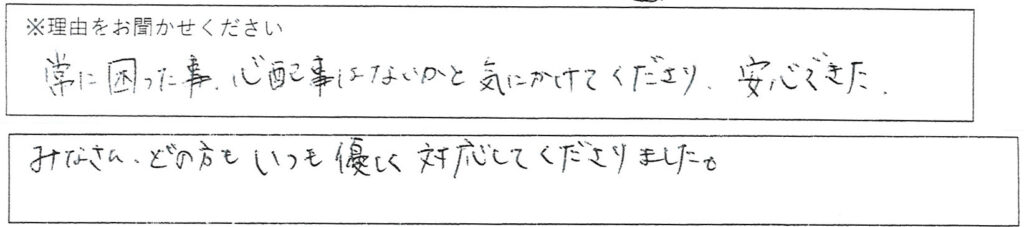 ※理由をお聞かせください
常に困った事、心配事はないかと気にかけてくださり、安心できた。
みなさん、どの方もいつも優しく対応してくださりました。